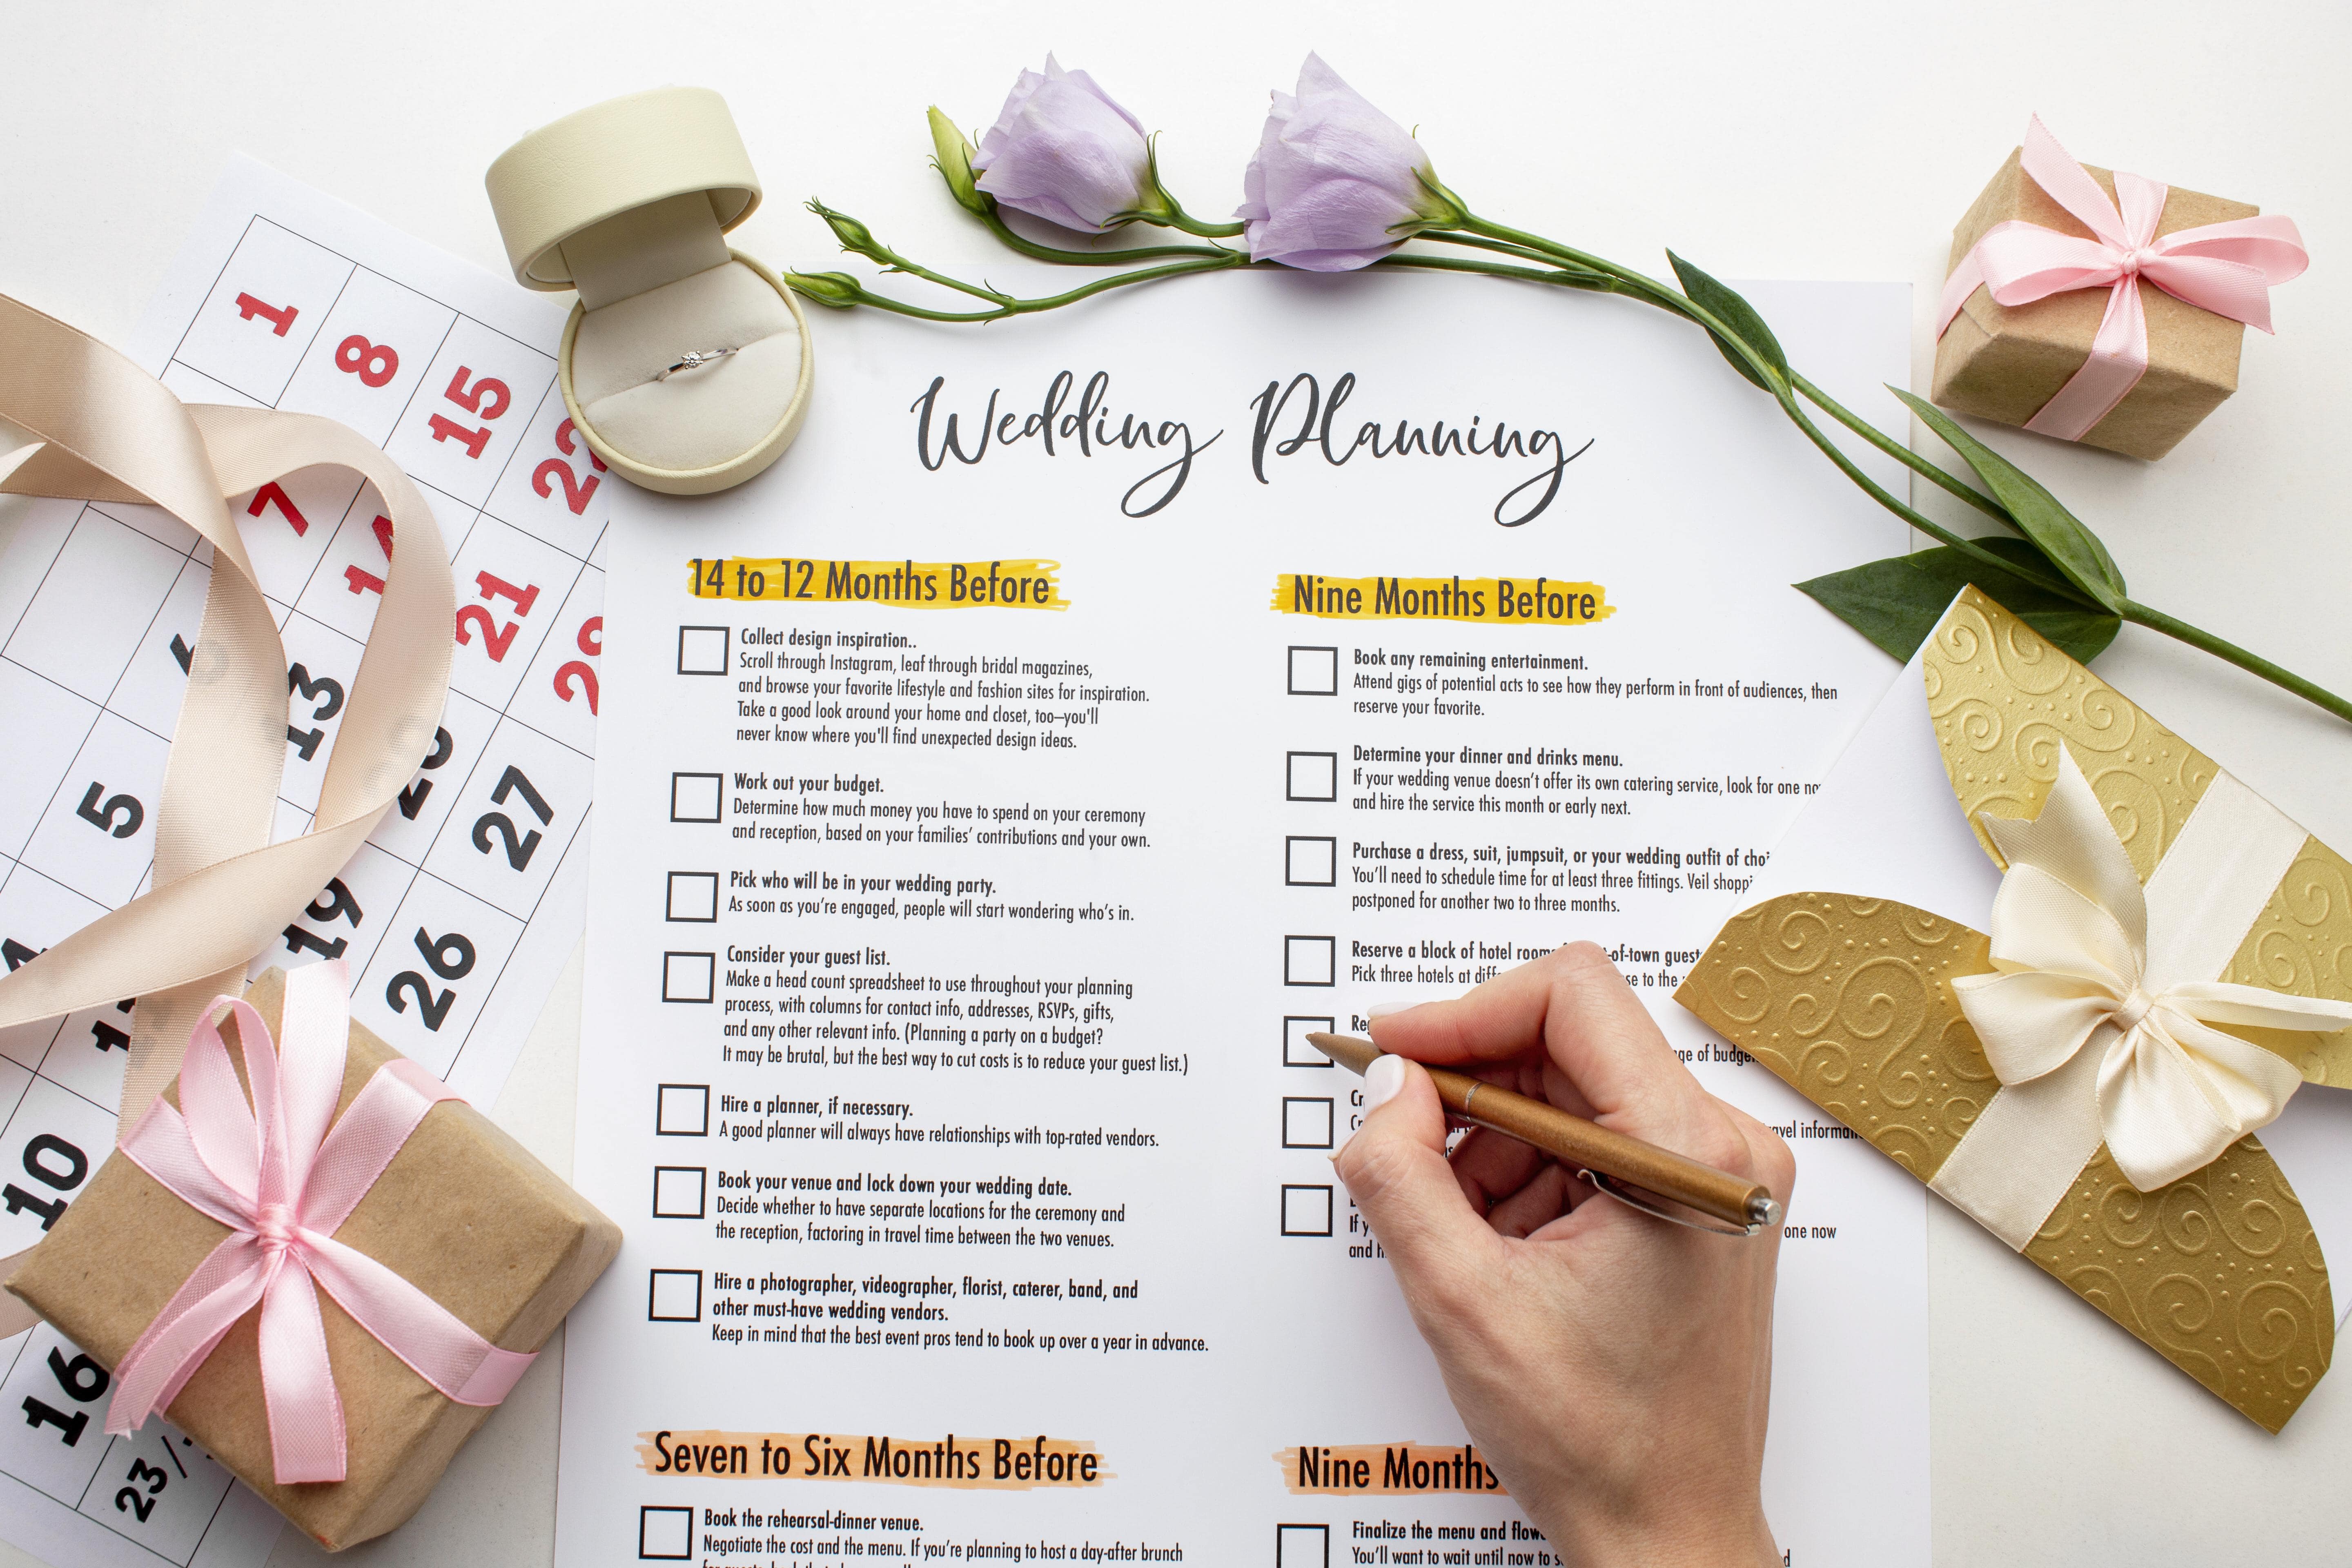 Wedding Planning
14 to 12 Months Before
Collect design inspiration..
Scroll through Instagram, leaf through bridal magazines,
and browse your favorite lifestyle and fashion sites for inspiration.
Take a good look around your home and closet, too—you'll
never know where you'll find unexpected design ideas.
Work out your budget.
Determine how much money you have to spend on your ceremony
and reception, based on your families' contributions and your own.
Pick who will be in your wedding party.
As soon as you're engaged, people will start wondering who's in.
Consider your guest list.
Make a head count spreadsheet to use throughout your planning
process, with columns for contact info, addresses, RSVPs, gifts,
and any other relevant info. (Planning a party on a budget?
It may be brutal, but the best way to cut costs is to reduce your guest list.)
Hire a planner, if necessary.
A good planner will always have relationships with top-rated vendors.
Book your venue and lock down your wedding date.
Decide whether to have separate locations for the ceremony and
the reception, factoring in travel time between the two venues.
Hire a photographer, videographer, florist, caterer, band, and
other must-have wedding vendors.
Keep in mind that the best event pros tend to book up over a year in advance.
Seven to Six Months Before
Book the rehearsal-dinner venue.
Negotiate the cost and the menu. If you're planning to host a day-after brunch
Nine Months Before
Book any remaining entertainment.
Attend gigs of potential acts to see how they perform in front of audiences, then
reserve your favorite.
Determine your dinner and drinks menu.
If your wedding venue doesn't offer its own catering service, look for one
and hire the service this month or early next.
Purchase a dress, suit, jumpsuit, or your wedding outfit of
You'll need to schedule time for at least three fittings. Veil
postponed for another two to three months.
Reserve a block of hotel -of-town
Pick three hotels at to the
of
If
and
one now
Nine Months
Finalize the menu and
You'll want to wait until now to
1 8 15 22
7 14 21 28
6 13 20 27
5 19 26
10
16
23/